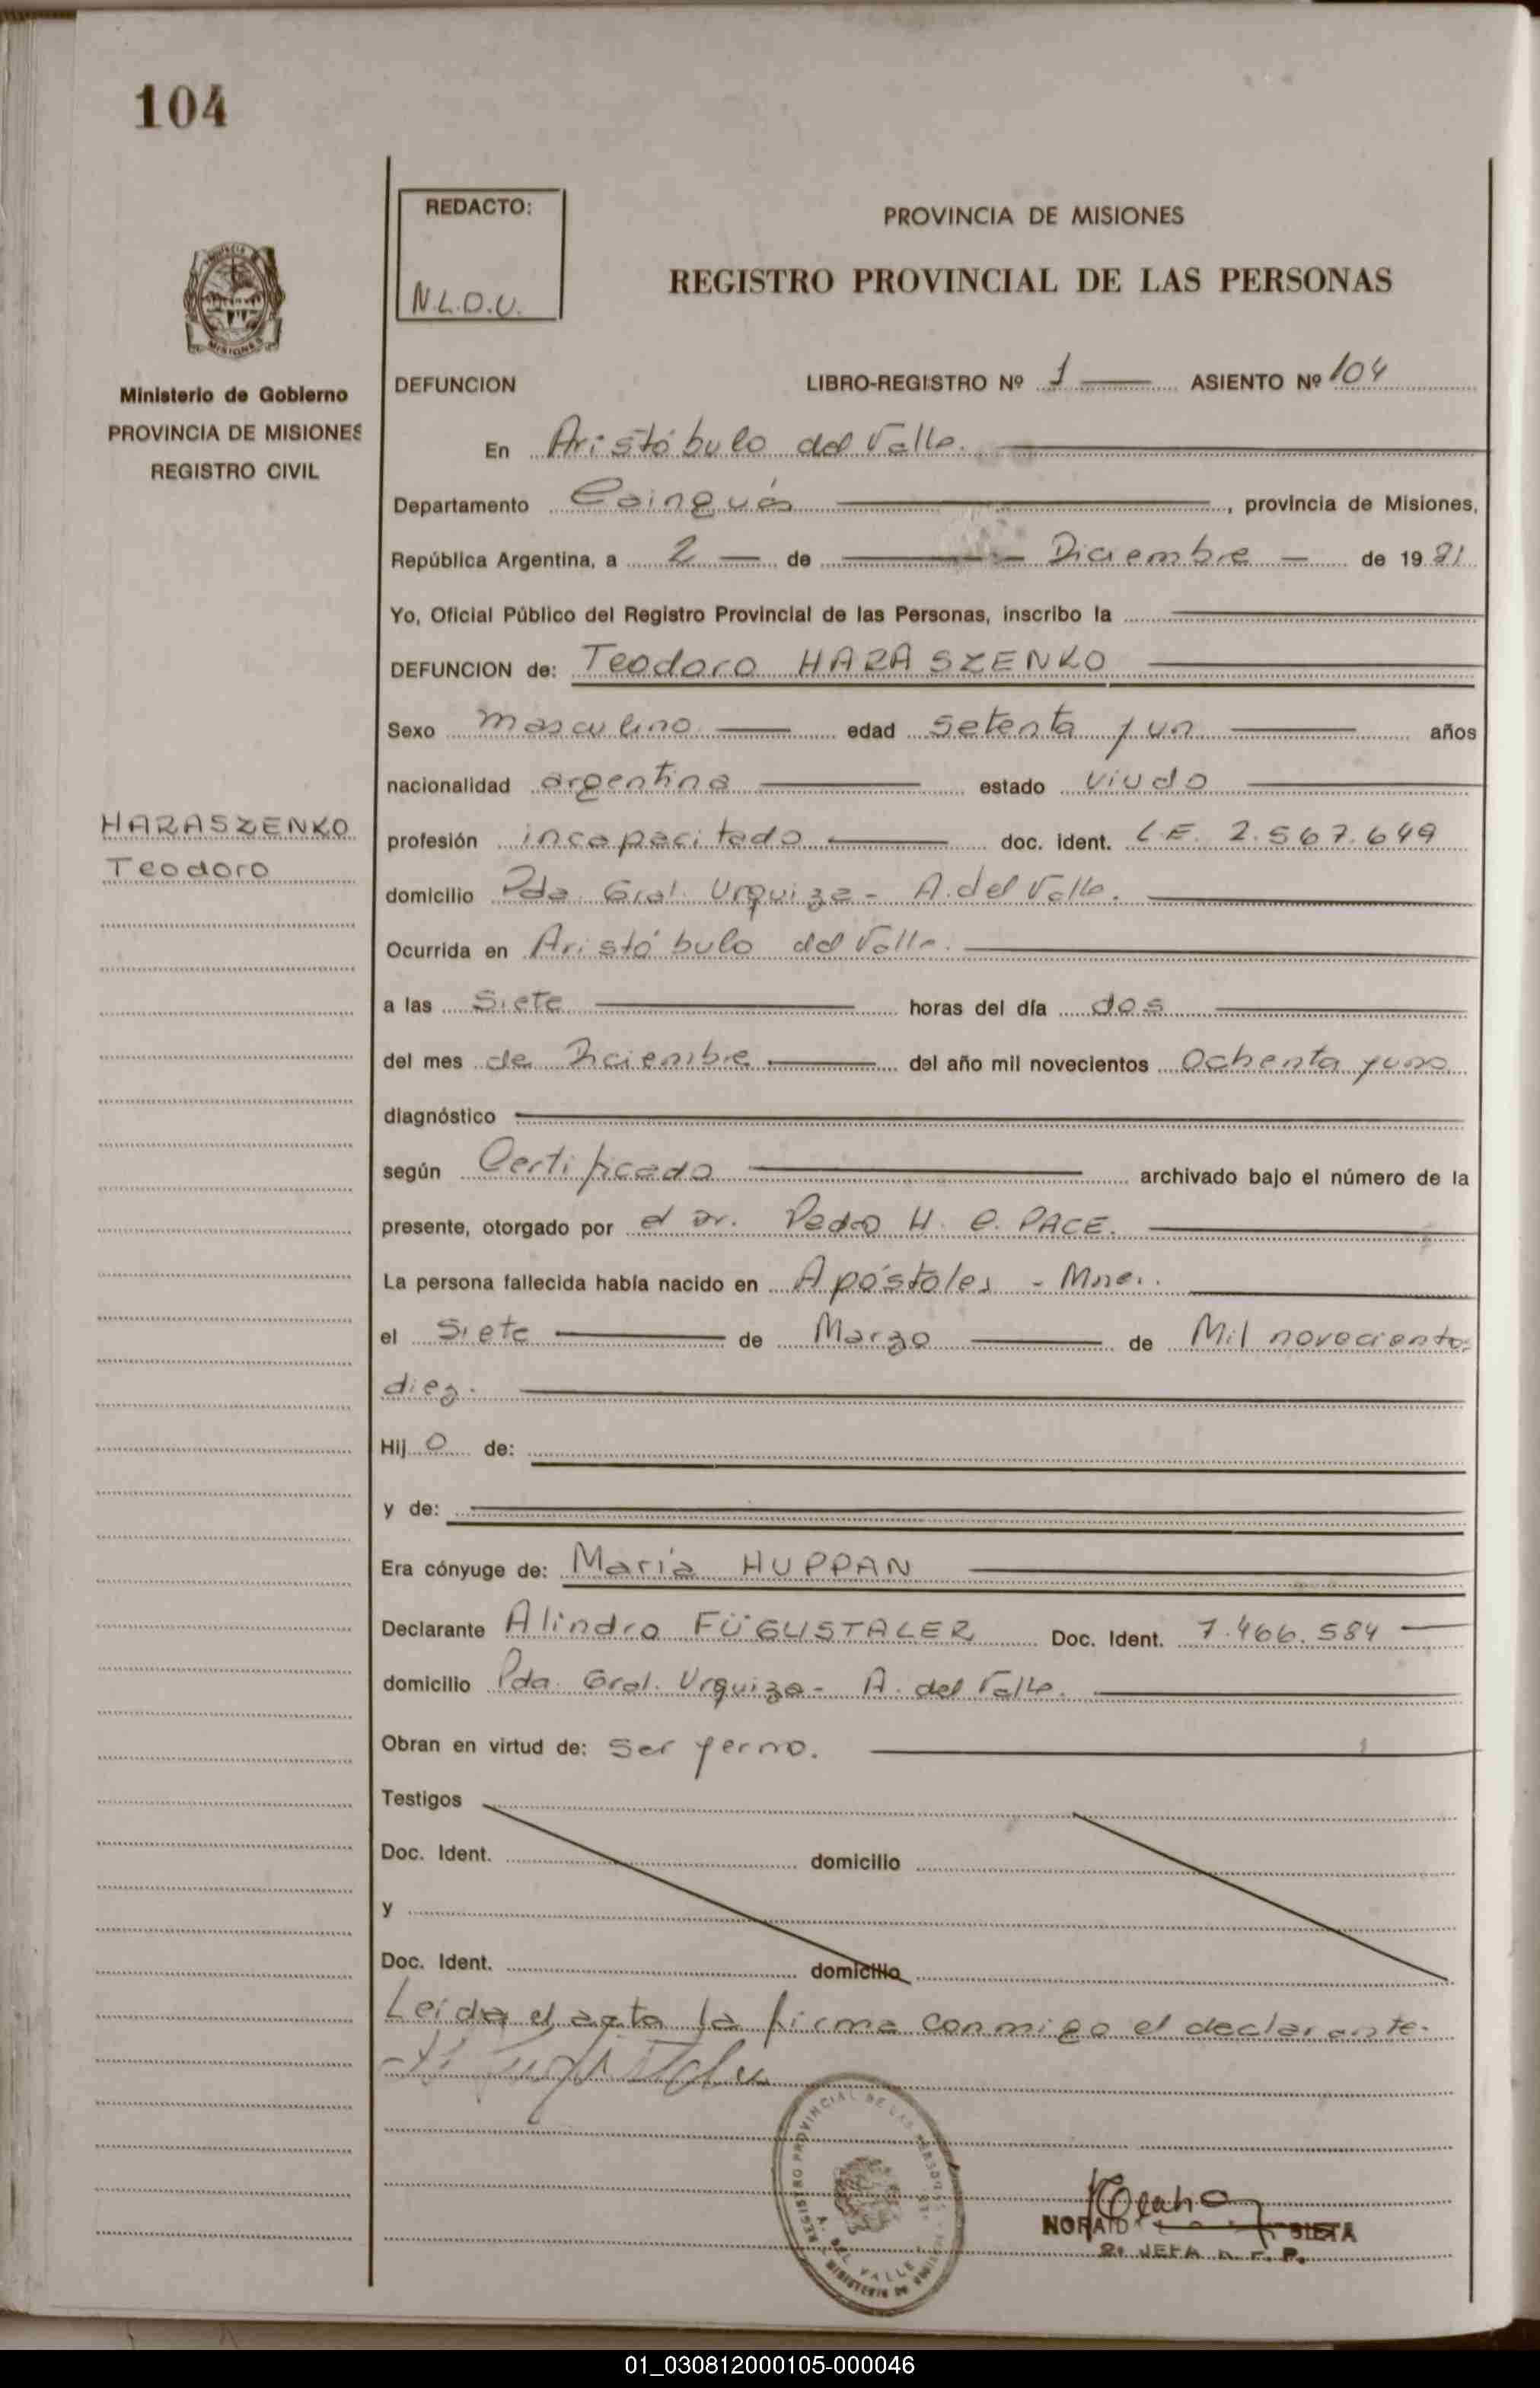 104
REDACTO:
N.L.D.U.
PROVINCIA DE MISIONES
REGISTRO PROVINCIAL DE LAS PERSONAS
MISIONES
Ministerio de Gobierno
PROVINCIA DE MISIONES
REGISTRO CIVIL
DEFUNCION LIBRO-REGISTRO Nº 1 ASIENTO Nº 104
En Aristóbulo del Valle.
Departamento Cainguás, provincia de Misiones,
República Argentina, a 2 de Diciembre de 1981
Yo, Oficial Público del Registro Provincial de las Personas, inscribo la
DEFUNCION de: Teodoro HARASZENKO
Sexo masculino edad setenta y un años
nacionalidad argentina estado viudo
HARASZENKO
Teodoro
profesión incapacitado doc. ident. L.E. 2.567.649
domicilio Pda. Gral. Urquiza - A. del Valle.
Ocurrida en Aristóbulo del Valle.
a las Siete horas del día dos
del mes de Diciembre del año mil novecientos Ochenta y uno
diagnóstico
según Certificado archivado bajo el número de la
presente, otorgado por el Dr. Pedro H. C. PACE.
La persona fallecida había nacido en Apóstoles - Mnes.
el Siete de Marzo de Mil novecientos
diez.
Hij o de:
y de:
Era cónyuge de: María HUPPAN
Declarante Alindro FÜGUSTALER Doc. Ident. 7.466.584
domicilio Pda. Gral. Urquiza - A. del Valle.
Obran en virtud de: Ser yerno.
Testigos
Doc. Ident. domicilio
y
Doc. Ident. domicilio
Leída el acta la firma conmigo el declarante.
REGISTRO PROVINCIAL DE LAS PERSONAS
A. DEL VALLE
MINISTERIO DE
NORA
2º JEFA R. P. P.
01_030812000105-000046